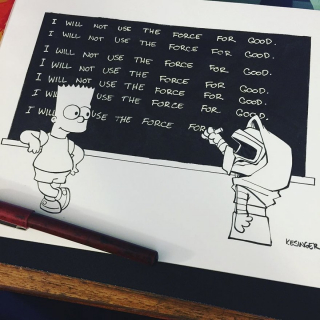 I WILL NOT USE THE FORCE FOR GOOD.
I WILL NOT USE THE FORCE FOR GOOD.
I WILL NOT USE THE FORCE FOR GOOD.
I WILL NOT USE THE FORCE FOR GOOD.
I WILL NOT USE THE FORCE FOR GOOD.
I USE THE FORCE FOR GOOD.
I WILL USE THE FORCE FOR
KESINGER